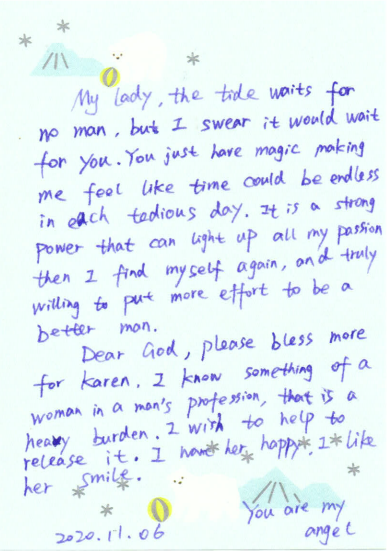 My lady, the tide waits for
no man, but I swear it would wait
for you. You just have magic making
me feel like time could be endless
in each tedious day. It is a strong
power that can light up all my passion
then I find myself again, and truly
willing to put more effort to be a
better man.
Dear God, please bless more
for karen. I know something of a
woman in a man's profession, that is a
heavy burden. I wish to help to
release it. I her happy. I like
her smile.
You are my
angel
2020.11.06